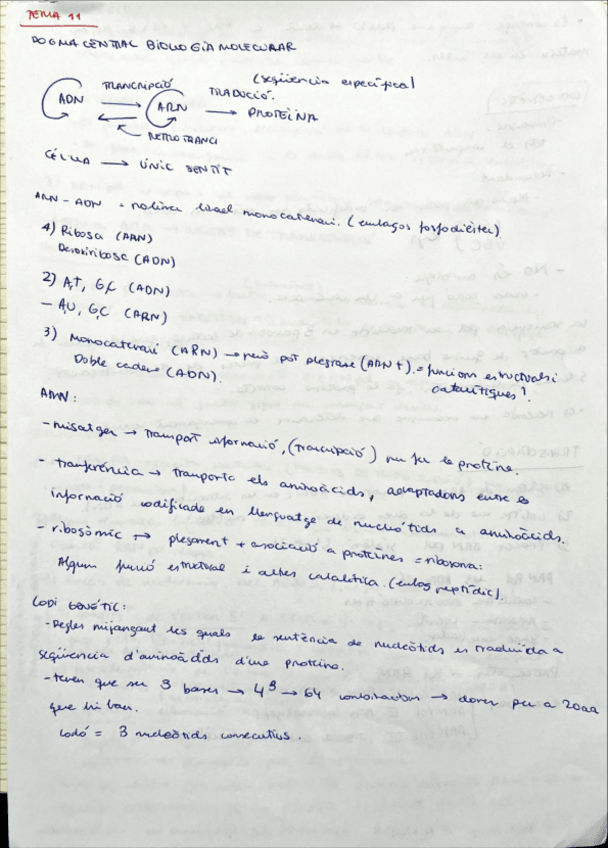 TEMA 11
DOGMA CENTRAL BIOLOGIA MOLECULAR
(seqüencia específica)
TRANCRIPCIÓ TRADUCIÓ.
ADN → ARN → PROTEÏNA
RETROTRANCI
CÉL·LULA → ÚNIC SENTIT
ARN - ADN = lineal monocatenari. (enllaços fosfodièster)
1) Ribosa (ARN)
Desoxiribosa (ADN)
2) A,T, G,C (ADN)
- A,U, G,C (ARN)
3) Monocatenari (ARN) → però pot plegarse (ARN t). = funcions estructurals i
Doble cadena (ADN). catalítiques!
ARN:
- misatger → transport informació, (trancripció) per fer la proteïna.
- tranferència → tranporta els aminoàcids, adaptadors entre la
informació codificada en llenguatge de nucleòtids a aminoàcids.
- ribosòmic → plegament + asociació a proteïnes = ribosoma:
Alguns funció estructural i altres catalítica. (enllaç peptídic).
CODI GENÈTIC:
- Regles mijançant les quals la sentència de nucleòtids es traduïda a
seqüencia d'aminoàcids d'una proteïna.
- tenen que ser 3 bases → 4³ → 64 combinacions → dones per a 20aa
que hi han.
Codó = 3 nucleòtids consecutius.